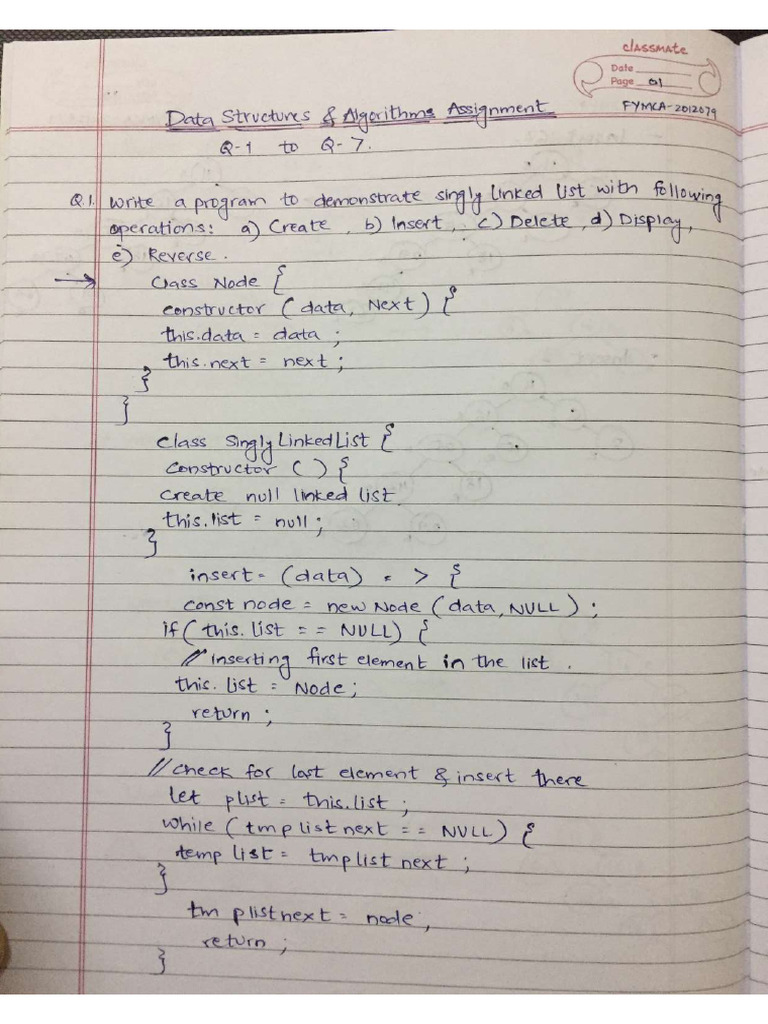 classmate
Date
Page 01
FYMCA-2012079
Data Structures & Algorithms Assignment
Q-1 to Q-7.
Q.1. Write a program to demonstrate singly linked list with following
operations: a) Create, b) Insert, c) Delete, d) Display,
e) Reverse.
→ Class Node {
constructor (data, Next) {
this.data = data ;
this.next = next ;
}
}
Class SinglyLinkedList {
Constructor () {
Create null linked list.
this.list = null ;
}
insert = (data) = > {
const node = new Node (data, NULL) ;
if (this.list == NULL) {
// Inserting first element in the list .
this.list = Node ;
return ;
}
// check for last element & insert there
let plist = this.list ;
while (tmp list next == NULL) {
temp list = tmplist next ;
}
tm plistnext = node ,
return ;
}